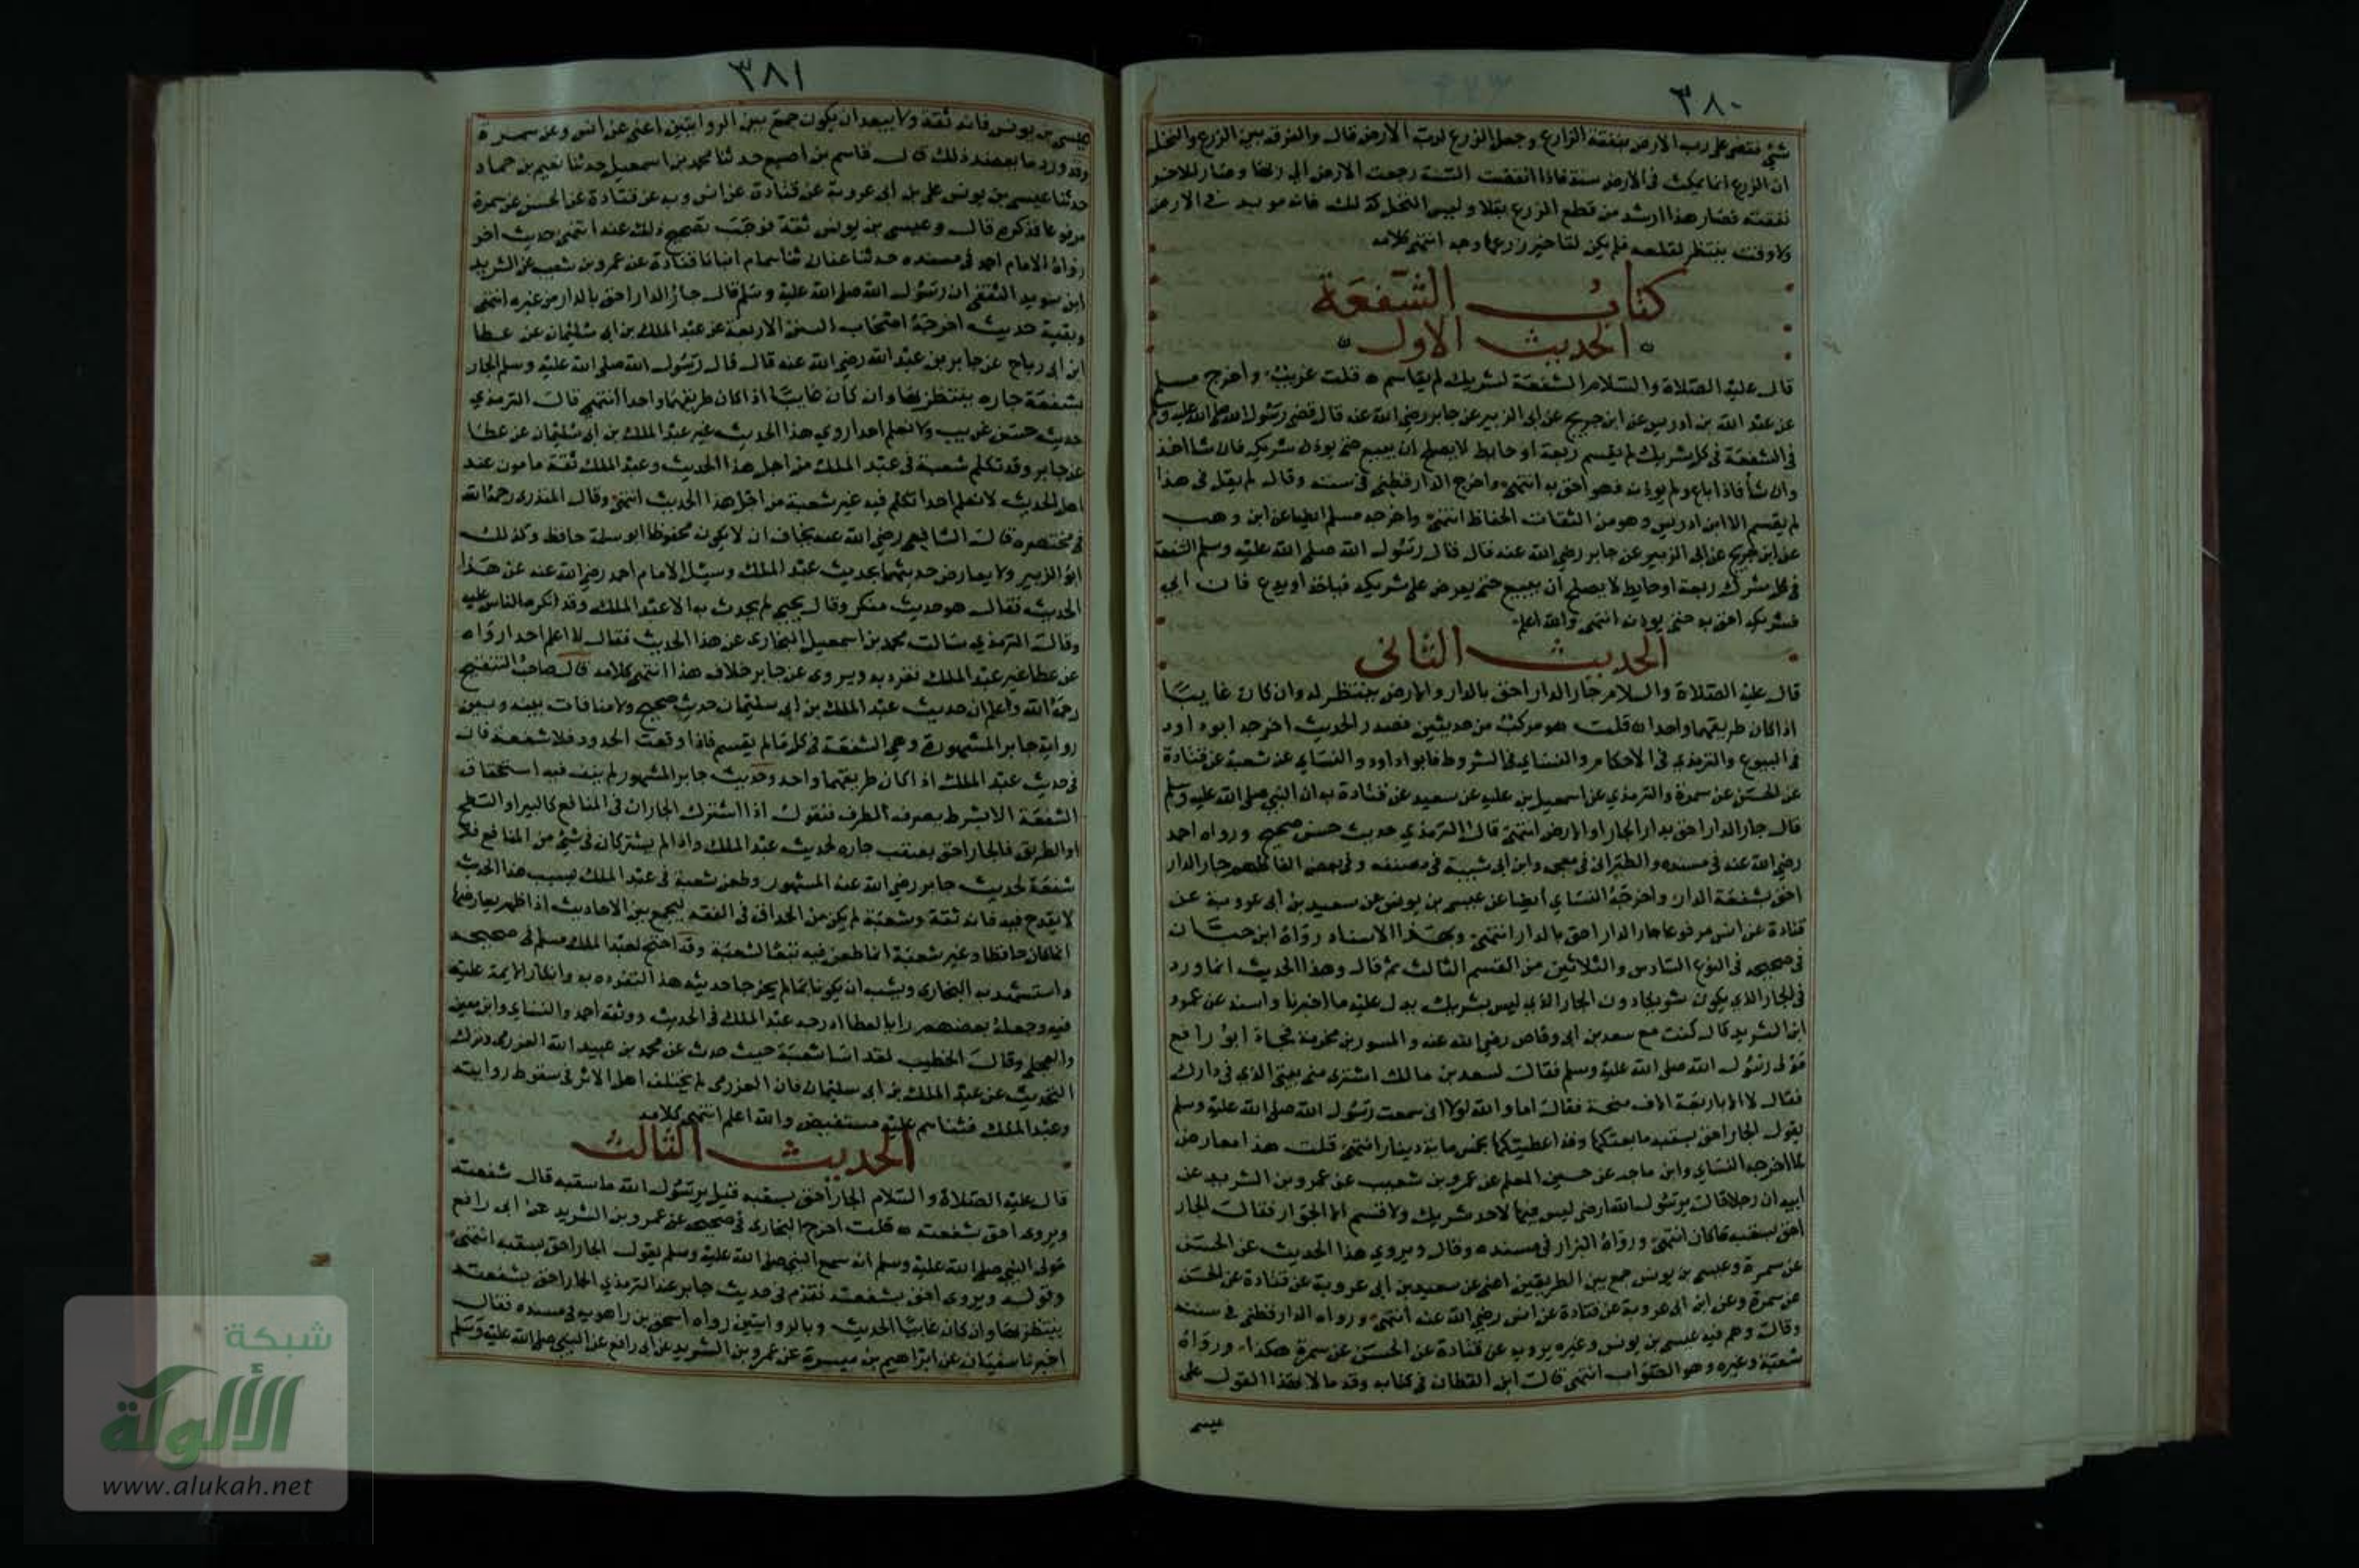 ٣٨٠
شيء فنقضى على رب الارض بنفقة الزارع وجعل الزرع لرب الارض قال والفرق بين الزرع والنخل
ان الزرع انما يمكث فى الارض سنة فاذا انقضت السنة رجعت الارض الى ربها وصار للاخر
نفقته فصار هذا ارشد من قطع الزرع بقلا وليس النخل كذلك فانه مؤبد فى الارض
ولا وقت ينتظر لقلعه فلم يكن لتاخير نزعها وجه انتهى كلامه
كتاب الشفعة
الحديث الاول
قال عليه الصلاة والسلام الشفعة لشريك لم يقاسم قلت غريب واخرج مسلم
عن عبد الله بن ادريس عن ابن جريج عن ابى الزبير عن جابر رضى الله عنه قال قضى رسول الله صلى الله عليه وسلم
فى الشفعة فى كل شريك لم يقسم ربعة او حايط لا يصلح ان يبيع حتى يوذن شريكه فان شا اخذ
وان شا فاذا باع ولم يوذنه فهو احق به انتهى واخرج الدارقطنى فى سننه وقال لم يقل فى هذا
لم يقسم الا ابن ادريس وهو من الثقات الحفاظ انتهى واخرجه مسلم ايضا عن ابن وهب
عن ابن جريج عن ابى الزبير عن جابر رضى الله عنه قال قال رسول الله صلى الله عليه وسلم الشفعة
فى كل شرك ربعة او حايط لا يصلح ان يبيع حتى يعرض على شريكه فياخذ او يدع فان ابى
فشريكه احق به حتى يوذنه انتهى والله اعلم
الحديث الثانى
قال عليه الصلاة والسلام جار الدار احق بالدار والارض ينتظر له وان كان غايبا
اذا كان طريقهما واحدا قلت هو مركب من حديثين فصدر الحديث اخرجه ابو داود
فى البيوع والترمذى فى الاحكام والنساى فى الشروط فابو داود والنساى عن شعبة عن قتادة
عن الحسن عن سمرة والترمذى عن اسمعيل بن علية عن سعيد عن قتادة به ان النبى صلى الله عليه وسلم
قال جار الدار احق بدار الجار او الارض انتهى قال الترمذى حديث حسن صحيح ورواه احمد
رضى الله عنه فى مسنده والطبرانى فى معجمه وابن ابى شيبة فى مصنفه وفى بعض الفاظهم جار الدار
احق بشفعة الدار واخرجه النساى ايضا عن عيسى بن يونس عن سعيد بن ابى عروبة عن
قتادة عن انس مرفوعا جار الدار احق بالدار انتهى وبهذا الاسناد رواه ابن حبان
فى صحيحه فى النوع السادس والثلاثين من القسم الثالث ثم قال وهذا الحديث انما ورد
فى الجار الذى يكون شريكا دون الجار الذى ليس بشريك يدل عليه ما اخبرنا واسند عن عمرو
ابن الشريد قال كنت مع سعد بن ابى وقاص رضى الله عنه والمسور بن مخرمة فجاء ابو رافع
مولى رسول الله صلى الله عليه وسلم فقال لسعد بن مالك اشترى منى بيتى الذى فى دارك
فقال لا الا باربعة الاف منجمة فقال اما والله لولا انى سمعت رسول الله صلى الله عليه وسلم
يقول الجار احق بسقبه ما بعتكها وقد اعطيتكها بخمس ماية دينار انتهى قلت هذا معارض
لما اخرجه النساى وابن ماجه عن حسين المعلم عن عمرو بن شعيب عن عمرو بن الشريد عن
ابيه ان رجلا قال يرسول الله ارضى ليس فيها لاحد شريك ولا قسم الا الجوار فقال الجار
احق بسقبه ما كان انتهى ورواه البزار فى مسنده وقال ويروى هذا الحديث عن الحسن
عن سمرة وعيسى بن يونس جمع بين الطريقين اعنى عن سعيد بن ابى عروبة عن قتادة عن الحسن
عن سمرة وعن ابن ابى عروبة عن قتادة عن انس رضى الله عنه انتهى ورواه الدارقطنى فى سننه
وقال وهم فيه عيسى بن يونس وغيره يرويه عن قتادة عن الحسن عن سمرة هكذا ورواه
شعبة وغيره وهو الصواب انتهى قال ابن القطان فى كتابه وقد مالا لهذا القول على
عيسى
٣٨١
عيسى بن يونس فانه ثقة ولا يبعد ان يكون جمع بين الروايتين اعنى عن انس وعن سمرة
وقد ورد ما يعضد ذلك قال قاسم بن اصبغ حدثنا محمد بن اسمعيل حدثنا نعيم بن حماد
حدثنا عيسى بن يونس عن ابن ابى عروبة عن قتادة عن انس وبه عن قتادة عن الحسن عن سمرة
مرفوعا فذكره قال وعيسى بن يونس ثقة فوجب تصحيح ذلك عنه انتهى حديث اخر
رواه الامام احمد فى مسنده حدثنا عفان ثنا همام انبانا قتادة عن عمرو بن شعيب عن الشريد
ابن سويد الثقفى ان رسول الله صلى الله عليه وسلم قال جار الدار احق بالدار من غيره انتهى
وبقية حديثه اخرجه اصحاب السنن الاربعة عن عبد الملك بن ابى سليمان عن عطا
ابن ابى رباح عن جابر بن عبد الله رضى الله عنه قال قال رسول الله صلى الله عليه وسلم الجار احق
بشفعة جاره ينتظر بها وان كان غايبا اذا كان طريقهما واحدا انتهى قال الترمذى
حديث حسن غريب ولا نعلم احدا روى هذا الحديث غير عبد الملك بن ابى سليمان عن عطا
عن جابر وقد تكلم شعبة فى عبد الملك من اجل هذا الحديث وعبد الملك ثقة مامون عند
اهل الحديث لا نعلم احدا تكلم فيه غير شعبة من اجل هذا الحديث انتهى وقال المنذرى رحمه الله
فى مختصره قال الشافعى رضى الله عنه يخاف ان لا يكون محفوظا ابو سلمة حافظ وكذلك
ابو الزبير ولا يعارض حديثهما بحديث عبد الملك وسيل الامام احمد رضى الله عنه عن هذا
الحديث فقال هو حديث منكر وقال يحيى لم يحدث به الا عبد الملك وقد انكره الناس عليه
وقال الترمذى سالت محمد بن اسمعيل البخارى عن هذا الحديث فقال لا اعلم احدا رواه
عن عطا غير عبد الملك تفرد به ويروى عن جابر خلاف هذا انتهى كلامه قال صاحب التنقيح
رحمه الله واعلم ان حديث عبد الملك بن ابى سليمان حديث صحيح ولا منافات بينه وبين
رواية جابر المشهورة وهى الشفعة فى كل ما لم يقسم فاذا وقعت الحدود فلا شفعة فان
فى حديث عبد الملك اذا كان طريقهما واحد وحديث جابر المشهور لم ينف فيه استحقاق
الشفعة الا بشرط بصرف الطرق فنقول اذا اشترك الجاران فى المنافع كالبير او السطح
او الطريق فالجار احق بصقب جاره لحديث عبد الملك واذا لم يشتركان فى شيء من المنافع فلا
شفعة لحديث جابر رضى الله عنه المشهور وطعن شعبة فى عبد الملك بسبب هذا الحديث
لا يقدح فيه فانه ثقة وشعبة لم يكن من الحذاق فى الفقه ليجمع بين الاحاديث اذا ظهر تعارضها
انما كان حافظا وغير شعبة انما طعن فيه تبعا لشعبة وقد احتج لعبد الملك مسلم فى صحيحه
واستشهد به البخارى ويشبه ان يكونا انما لم يخرجا حديثه هذا لتفرده به وانكار الايمة عليه
فيه وجعله بعضهم رايا لعطا ادرجه عبد الملك فى الحديث ووثقه احمد والنساى وابن معين
والعجلى وقال الخطيب لقد اسا شعبة حيث حدث عن محمد بن عبيد الله العزرمى وترك
التحديث عن عبد الملك بن ابى سليمان فان العزرمى لم يختلف اهل الاثر فى سقوط روايته
وعبد الملك فثناهم عليه مستفيض والله اعلم انتهى كلامه
الحديث الثالث
قال عليه الصلاة والسلام الجار احق بسقبه قيل يرسول الله ما سقبه قال شفعته
ويروى احق بشفعته قلت اخرج البخارى فى صحيحه عن عمرو بن الشريد عن ابى رافع
مولى النبى صلى الله عليه وسلم انه سمع النبى صلى الله عليه وسلم يقول الجار احق بسقبه انتهى
وقوله ويروى احق بشفعته تقدم فى حديث جابر عند الترمذى الجار احق بشفعته
ينتظر بها وان كان غايبا الحديث وبالروايتين رواه اسحق بن راهويه فى مسنده فقال
اخبرنا سفيان عن ابراهيم بن ميسرة عن عمرو بن الشريد عن ابى رافع عن النبى صلى الله عليه وسلم
شبكة
الألوكة
www.alukah.net